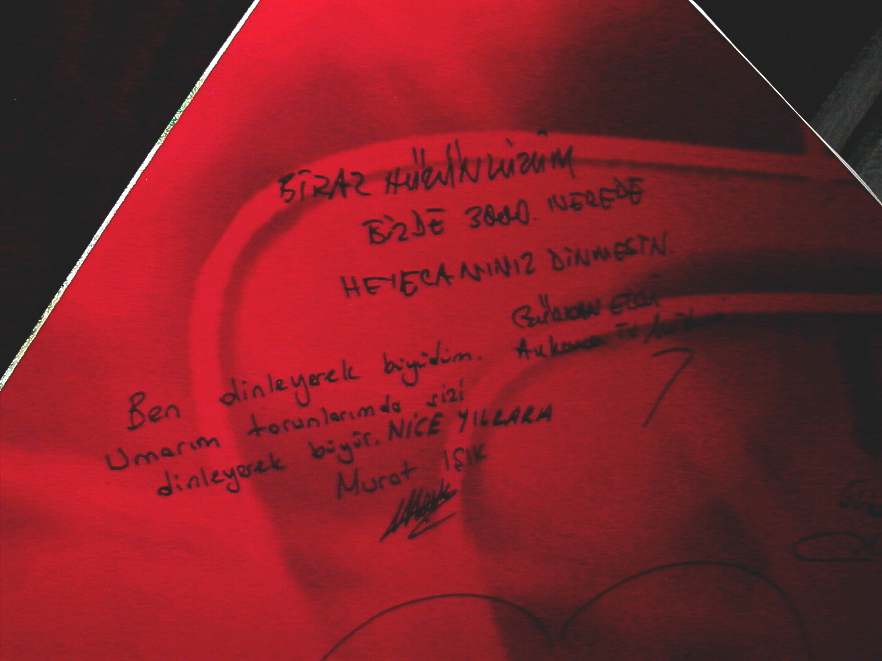 BİRAZ HÜZÜNLÜYÜM
BİZDE 3000. NEREDE
HEYECANINIZ DİNMESİN.
GÜRKAN
Ankara
Ben dinleyerek büyüdüm.
Umarım torunlarımda sizi
dinleyerek büyür. NİCE YILLARA
Murat IŞIK